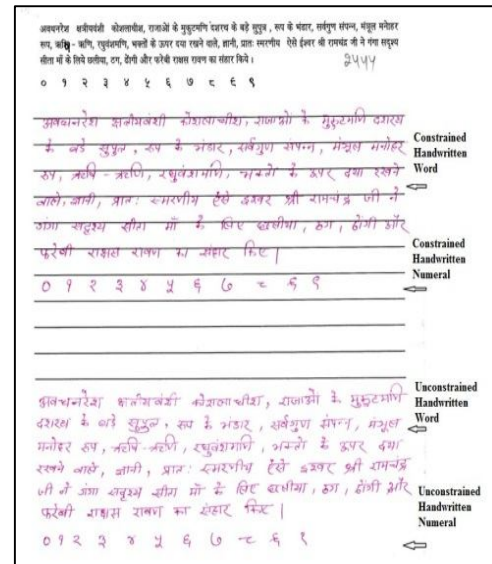 अवधनरेश क्षत्रीयवंशी कोशलाधीश, राजाओं के मुकुटमणि दशरथ के बड़े सुपुत्र , रूप के भंडार, सर्वगुण संपन्न, मंजुल मनोहर
रूप, ऋषि - ऋणि, रघुवंशमणि, भक्तों के ऊपर दया रखने वाले, ज्ञानी, प्रातः स्मरणीय ऐसे ईश्वर श्री रामचंद्र जी ने गंगा सदृश्य
सीता माँ के लिये छलीया, ठग, ढोंगी और फरेबी राक्षस रावण का संहार किये ।
० १ २ ३ ४ ५ ६ ७ ८ ६ ९
अवधनरेश क्षत्रीयवंशी कोशलाधीश, राजाओं के मुकुटमणि दशरथ
के बडे सुपुत्र, रूप के भंडार, सर्वगुण संपन्न, मंजुल मनोहर
रूप, ऋषि - ऋणि, रघुवंशमणि, भक्तों के ऊपर दया रखने
वाले, ज्ञानी, प्रातः स्मरणीय ऐसे ईश्वर श्री रामचंद्र जी ने
गंगा सदृश्य सीता माँ के लिए छलीया, ठग, ढोंगी और
फरेबी राक्षस रावण का संहार किए |
० १ २ ३ ४ ५ ६ ७ ८ ६ ९
Constrained
Handwritten
Word
Constrained
Handwritten
Numeral
अवधनरेश क्षत्रीयवंशी कोशलाधीश, राजाओं के मुकुटमणि
दशरथ के बडे सुपुत्र, रूप के भंडार, सर्वगुण संपन्न, मंजुल
मनोहर रूप, ऋषि - ऋणि, रघुवंशमणि, भक्तों के ऊपर दया
रखने वाले, ज्ञानी, प्रातः स्मरणीय ऐसे ईश्वर श्री रामचंद्र
जी ने गंगा सदृश्य सीता माँ के लिए छलीया, ठग, ढोंगी और
फरेबी राक्षस रावण का संहार किए |
० १ २ ३ ४ ५ ६ ७ ८ ६ ९
Unconstrained
Handwritten
Word
Unconstrained
Handwritten
Numeral